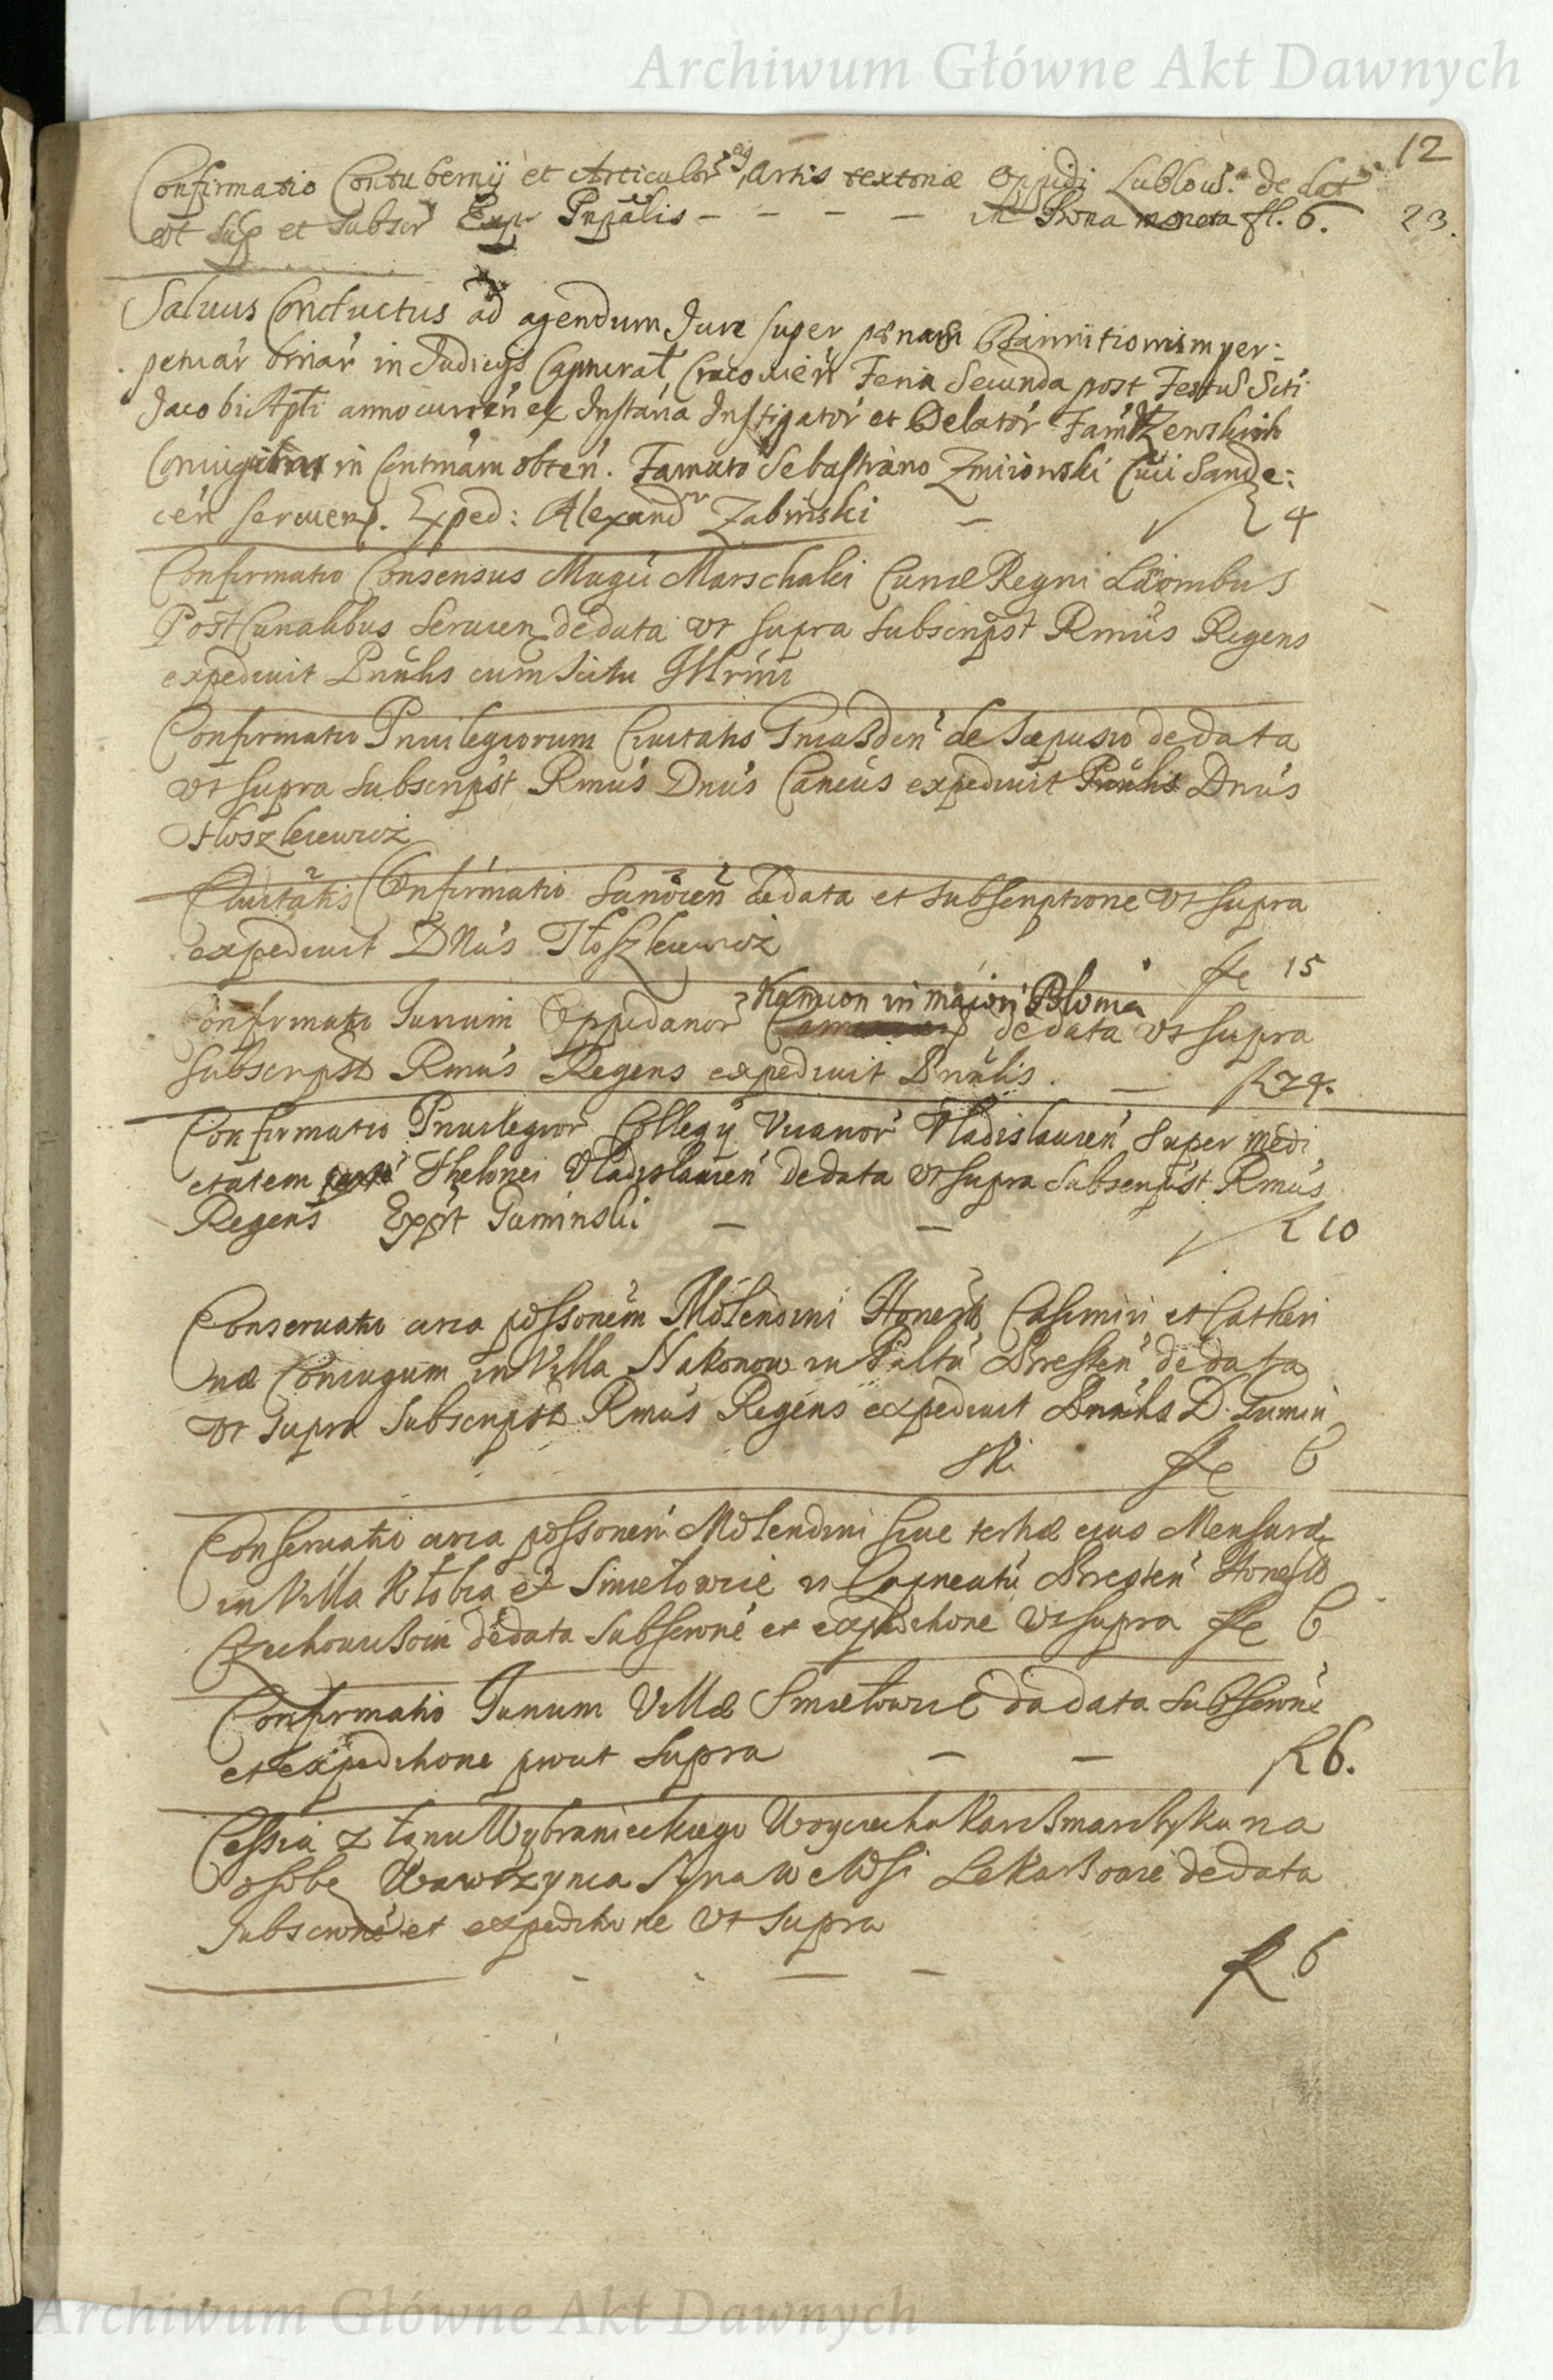 Archiwum Główne Akt Dawnych
12
Confirmatio Contubernÿ et Articulor eiq Artis textoriæ Oppidi Lublow. de dat
vt sup et subscr Exp. Prнpalis - - - - in Bona moneta fl. 6. 23.
Saluus Conductus ad agendum Jure super pænam Bannitionis in per:
petuar binar in Judicijs Capturat Cracouien Feria Secunda post Festu Scti
Jacobi Apli anno curren ex Instãa Instigator et Delator Fam
Coniugibus in Centmam obten. Famato Sebastiano Zmiiowski Ciui Sande:
cen seruien. Exped: Alexandr Zabinski - 4
Confirmatio Consensus Magci Marschalci Curiæ Regni
Post Curialibus seruien de data vt supra subscripst Rmus Regens
expediuit cum scitu Illrmi
Confirmatio Priuilegiorum Ciuitatis Gniasden de Scepusio de data
vt supra subscripst Rmus Dnus Cancus expediuit Dnus
Tłoszkiewicz
Ciuitatis Confirmatio Sanocen de data et subscriptione vt supra
expediuit DNus Tłoszkiewicz
fl 15
Kamion in maiori Polonia
Confirmatio Jurium Oppidanor de data vt supra
subscripst Rmus Regens expediuit - fl 24.
Confirmatio Priuilegior Collegÿ Vicarior Vladislauien super medi
etatem Thelonei Vladislauien de data vt supra subscripst Rmus
Regens Expt Guminski - - 10
Conseruatio circa possonem Molendini Honesto Casimiri et Catheri
næ Coniugum in Villa Nakonow in Paltu Bresten de data
vt supra subscripst Rmus Regens expediuit D. Gumin
ski fl 6
Conseruatio circa possonem Molendini siue tertiæ eius Mensuræ
in Villa Kłobia et Smiełowice in Capneatu Bresten Honesto
de data subscrone et expeditione vt supra fl 6
Confirmatio Jurium Villæ Smiełowice da data subscrone
et expeditione prout supra - - fl 6.
Cessia z łanu Wybranieckiego Woyciecha na
osobę Wawrzynca Syna we Wsi de data
subscrone et expeditione vt supra
- - fl 6
Archiwum Główne Akt Dawnych